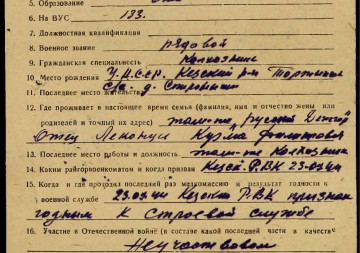 5. Образование
6. На ВУС 133.
7. Должностная квалификация
8. Военное звание рядовой
9. Гражданская специальность Колхозник
10. Место рождения У.А.С.С.Р. Кезский р-н
11. Последнее место жительства с/с. д.
12. Где проживает в настоящее время семья (фамилия, имя и отчество жены или
родителей и точный их адрес) там-же,
Отец
13. Последнее место работы и должность там-же Колхозник
14. Каким райгорвоенкоматом и когда призван Кезск РВК 23.03.44
15. Когда и где проходил последний раз медкомиссию и результат годности к
военной службе 23.03.44 РВК признан
годным к строевой службе
16. Участие в Отечественной войне (в составе какой последней части в качестве
Не участвовал